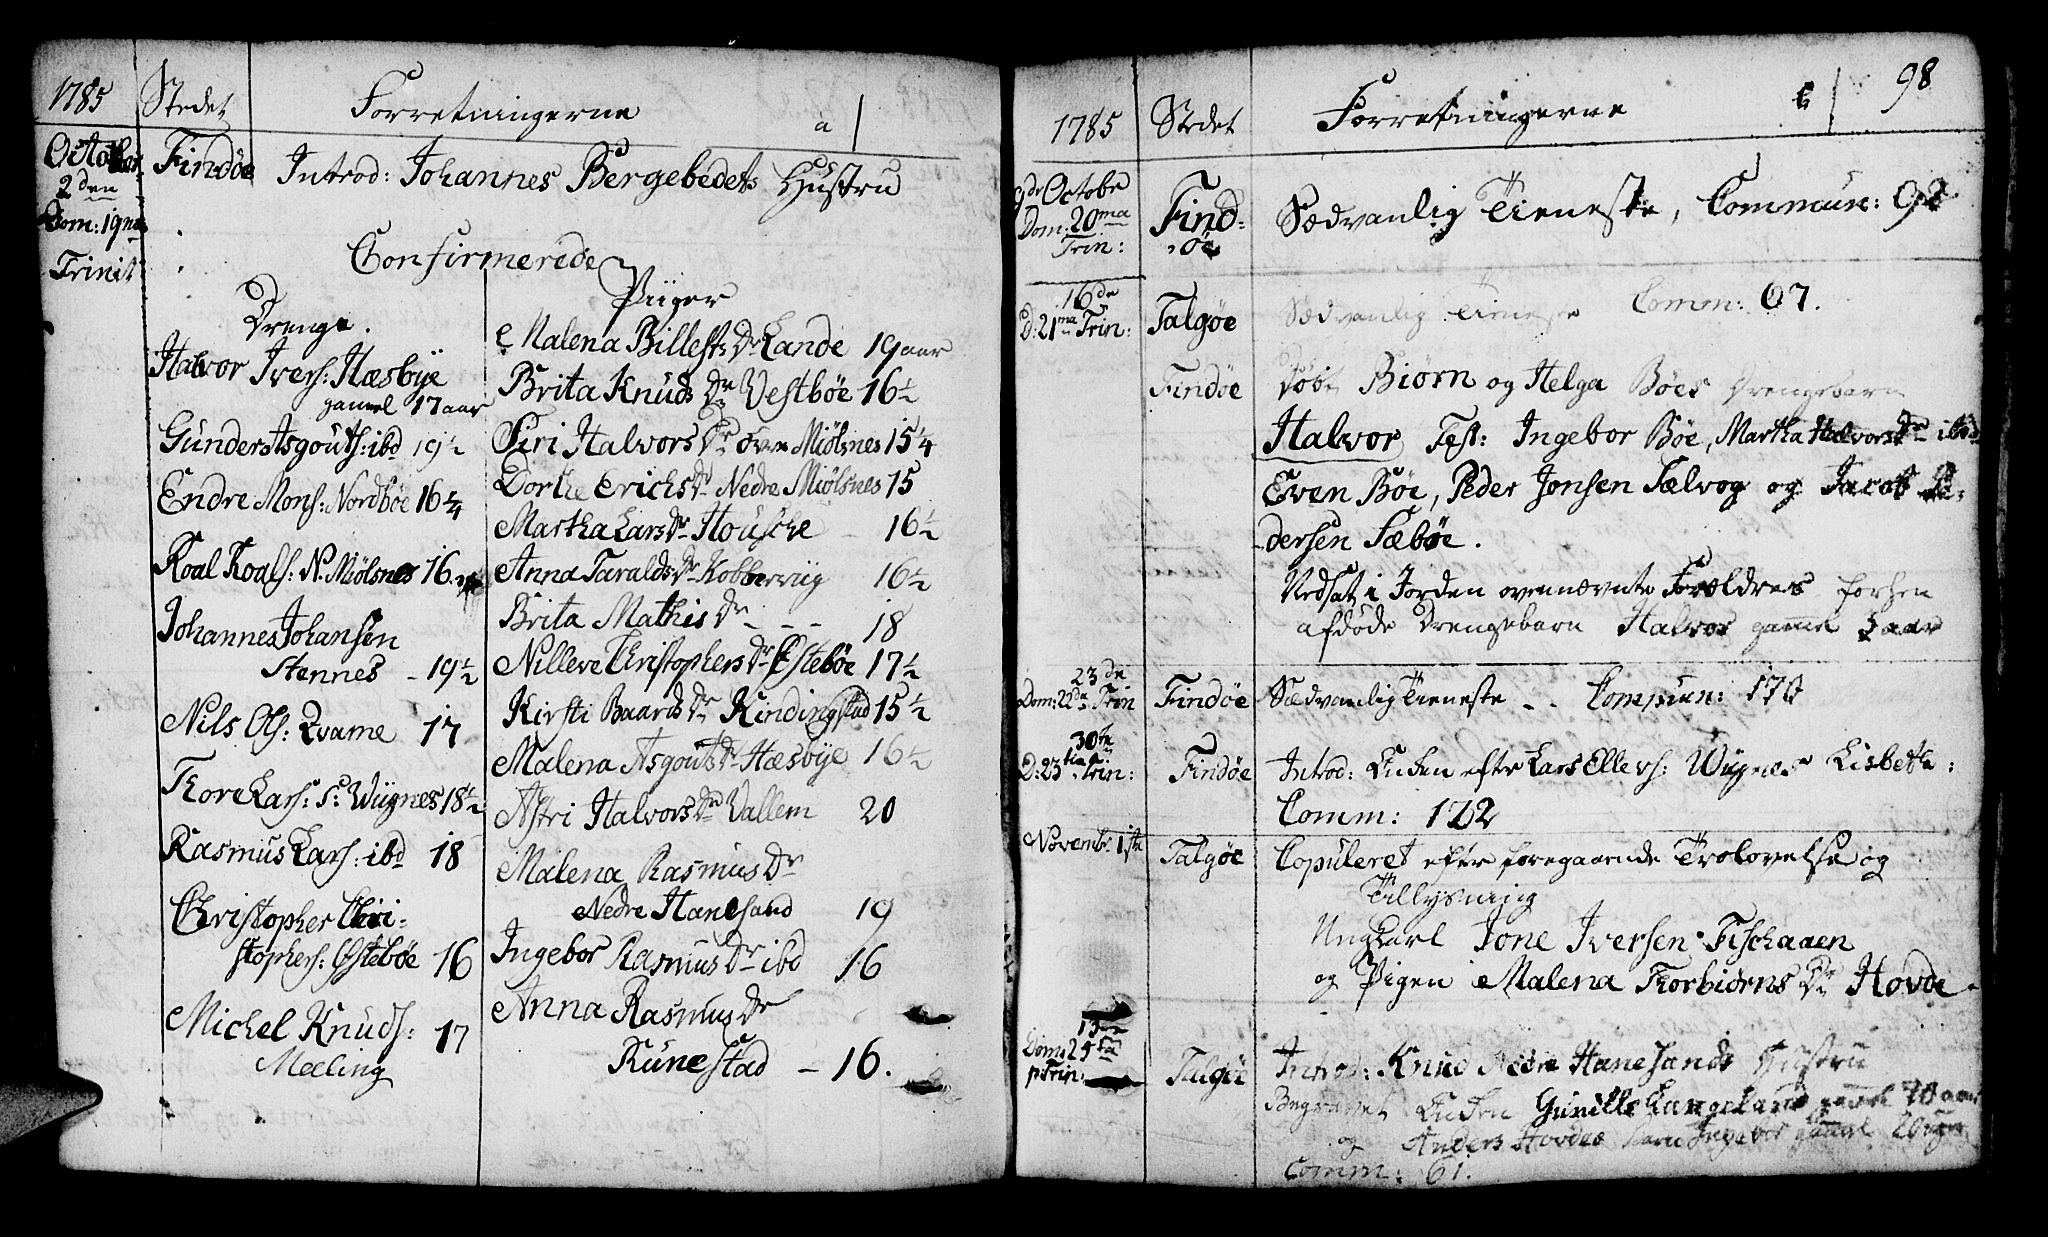 1785 Stedet Forretningerne a
October 2den Dom: 19na Trinit: Findöe Introd: Johannes Bergebedets Hustru
Confirmerede
Drenge.
Halvor Ivers: Hæsbÿe
gamel 17 aar
Gunder Asgouts: ibd 19½
Endre Mons: Nordböe 16¼
Roal Roals: N. Miölsnes 16.
Johannes Johansen
Stennes - 19½
Nils Ols: Qvame 17
Tore Lars: S: Wiignes 18½
Rasmus Lars: ibd 18
Christopher Chri-
stophers: Östeböe 16
Michel Knuds: 17
Mæling
Piiger
Malena Billests Dr Lande 19 aar
Brita Knuds Dr Vestböe 16½
Siri Halvors Dr övre Miölsnes 15¼
Dorthe Erichs Dr Nedre Miölsnes 15
Martha Lars Dr Housche - 16½
Anna Taralds Dr Kobberviig 16½
Brita Mathis Dr - - - 18
Nilleve Christophers Dr Östeböe 17½
Kirsti Baards Dr Kindingstad 15½
Malena Asgouts Dr Hæsbÿe 16½
Astri Halvors Dr Vallem 20
Malena Rasmus Dr
Nedre Hanesand 19
Ingebor Rasmus Dr ibd 16
Anna Rasmus Dr
Runestad - 16.
98
1785 Stedet Forretningerne
9de Octobr Dom: 20ma Trin: Find-öe Sædvanlig Tieneste, Commun: 92
16de D: 21ma Trin: Talgöe Sædvanlig Tieneste Comm: 67.
Findöe Döbt Biörn og Helga Böes Drengebarn
Halvor Test: Ingebor Böe, Martha Halvors Dr ibid
Even Böe, Peder Jonsen Sælvog og Jacob Pe-
dersen Sæböe.
Nedsat i Jorden ovennævnte Forældres forhen
afdöde Drengebarn Halvor gamel 3 aar
23de Dom: 22de Trin Findöe Sædvanlig Tieneste - - Commun: 170
30te D: 23tia Trin: Findöe Introd: Enken efter Lars Ellers: Wiignes Lisbeth:
Comm: 122
Novembr 1ste Talgöe Copuleret efter foregaaende Trolovelse og
Tillysning
Ungkarl Jone Iversen Fischaaen
og Pigen Malena Torbiörns Dr Hovde
13de Dom: 25ta p Trin: Talgöe Introd: Knud Nedre Hanesands Hustru
Begravet Enken Gunille Langeland gamel 70 aar
og Anders Hovdes barn Ingebor gamel 20 uger
Comm: 61.